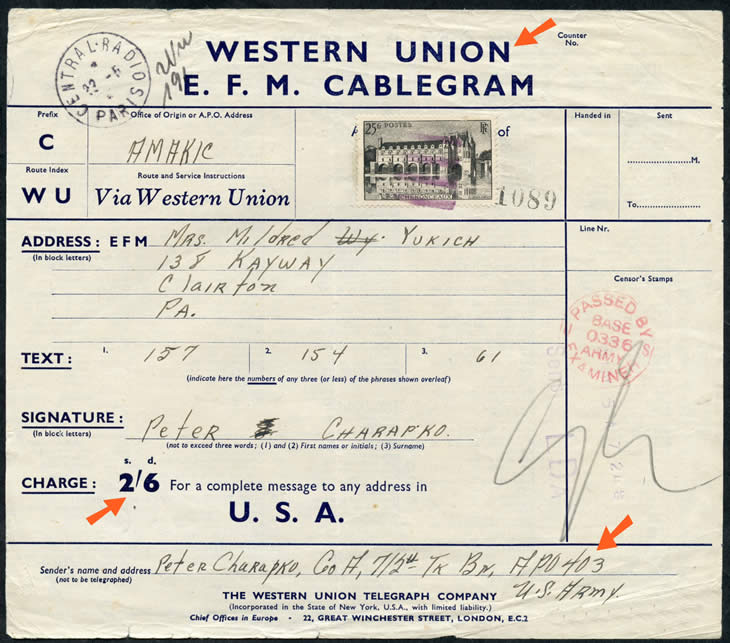 CENTRAL·RADIOS
22-5
PARIS
WESTERN UNION
E. F. M. CABLEGRAM
Counter
No.
Prefix
C
Office of Origin or A.P.O. Address
AMAKIC
25F POSTES
RF
CHENONCEAUX
A
of
1089
Handed in
Sent
M.
To
Route Index
W U
Route and Service Instructions
Via Western Union
ADDRESS : E F M Mrs. Mildred Wy. YUKICH
(In block letters)
138 KAYWAY
Clairton
PA.
Line Nr.
Censor's Stamps
PASSED BY US
BASE
0336
ARMY
EXAMINER
TEXT : 1. 157 2. 154 3. 61
(indicate here the numbers of any three (or less) of the phrases shown overleaf)
SIGNATURE : Peter CHARAPKO.
(In block letters)
(not to exceed three words ; (1) and (2) First names or initials ; (3) Surname)
s. d.
CHARGE : 2/6 For a complete message to any address in
U. S. A.
Sender's name and address Peter Charapko, Co A, 712th Tk Bn, APO 403
(not to be telegraphed)
U.S. Army.
THE WESTERN UNION TELEGRAPH COMPANY
(Incorporated in the State of New York, U.S.A., with limited liability.)
Chief Offices in Europe - 22, GREAT WINCHESTER STREET, LONDON, E.C.2